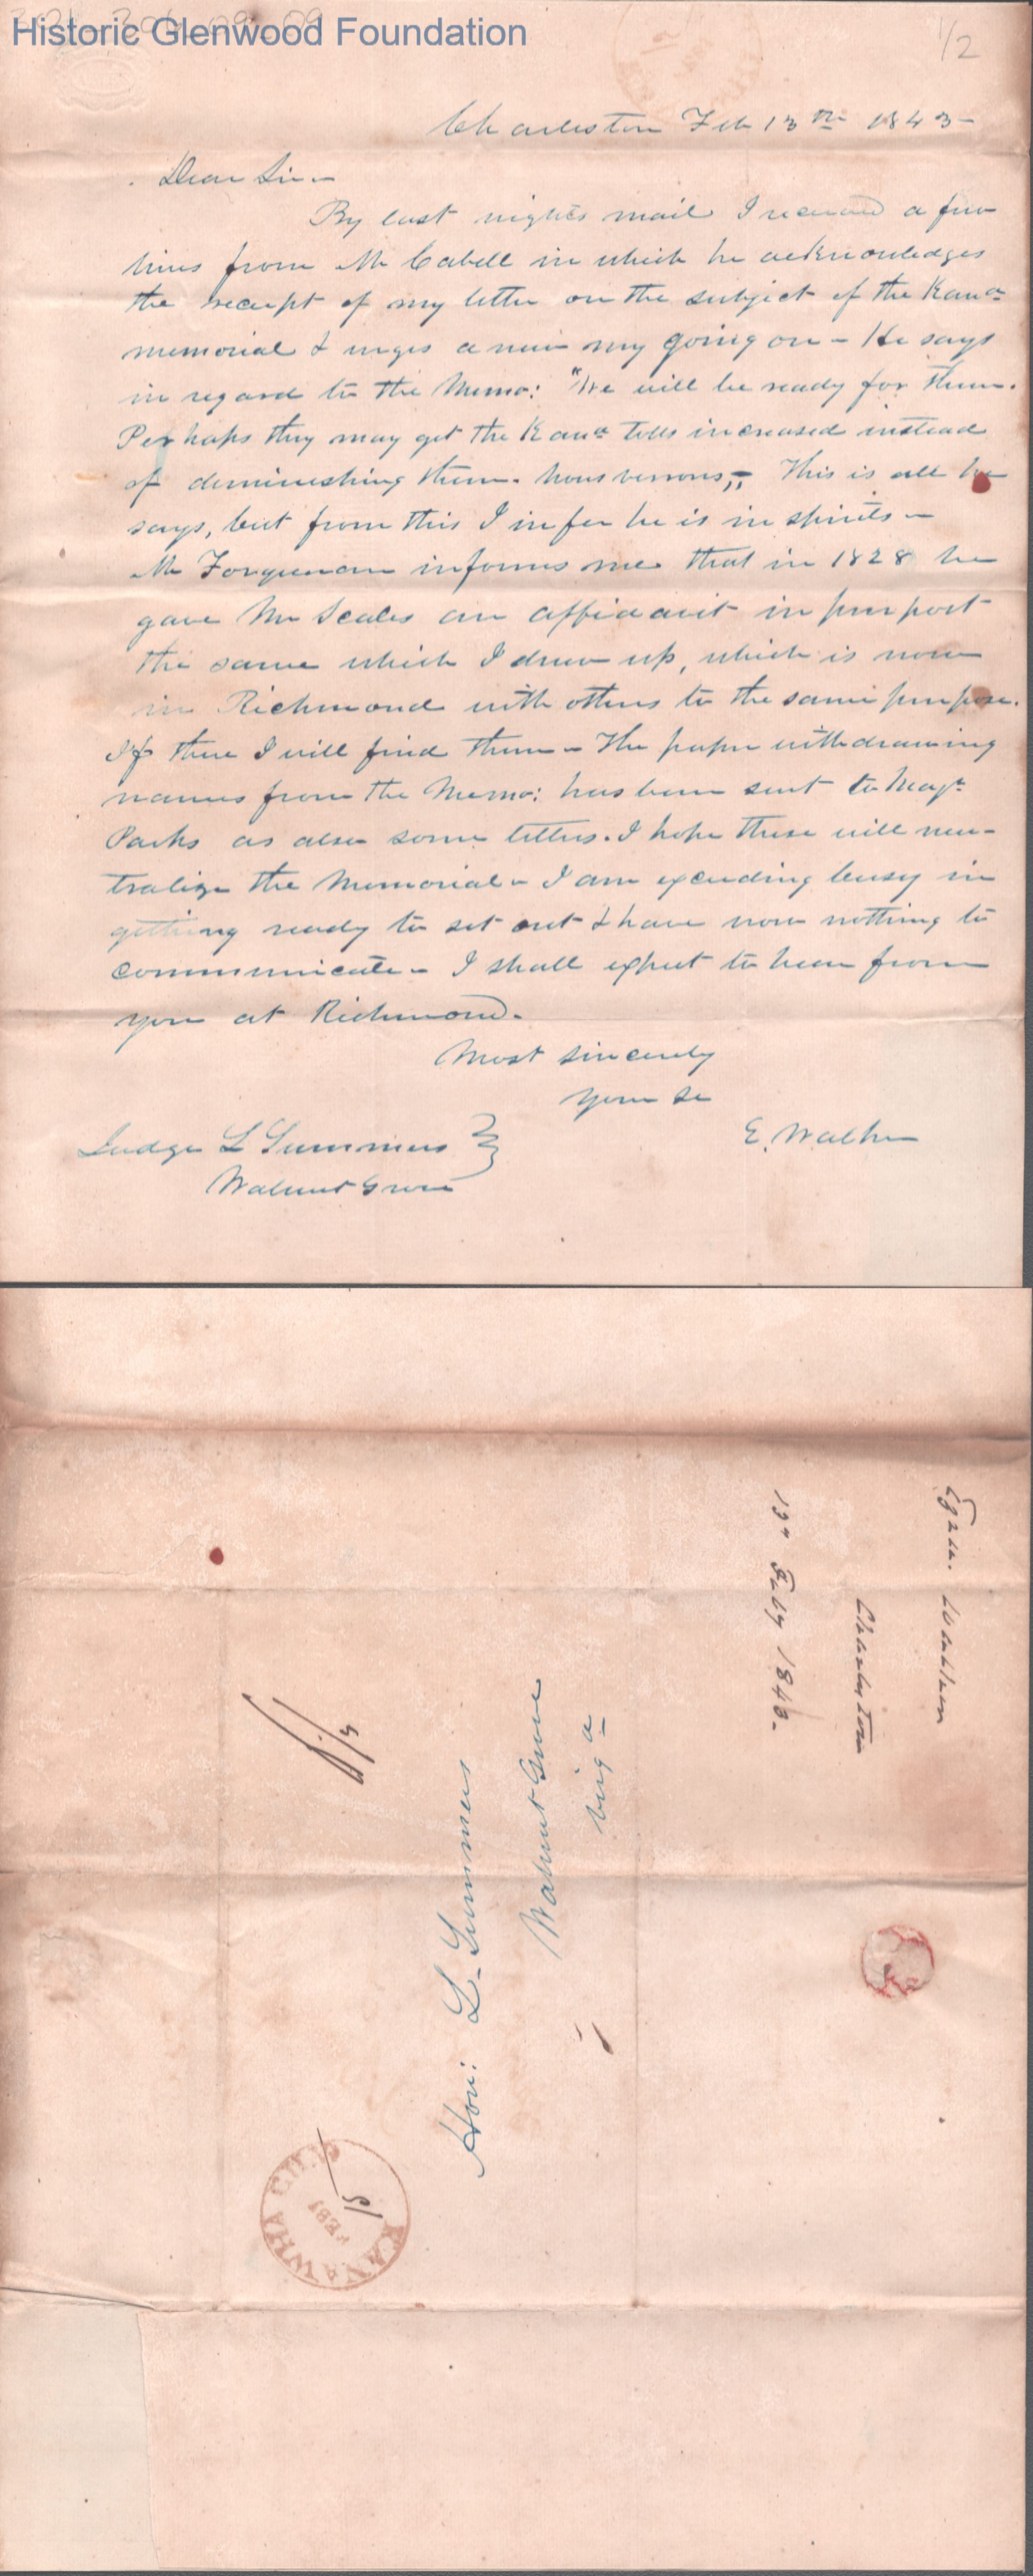 Historic Glenwood Foundation
1/2
Charleston Feb 13th 1843-
Dear Sir-
By last nights mail I received a few
lines from Mr Cabell in which he acknowledges
the receipt of my letter on the subject of the Kana
memorial & urges anew my going on - He says
in regard to the Memo: "We will be ready for them.
Perhaps they may get the Kana tolls increased instead
of diminishing them. nous verrons,- This is all he
says, but from this I infer he is in spirits -
Mr informs me that in 1828 he
gave Mr Scales an affidavit in purport
the same which I drew up, which is now
in Richmond with others to the same purpose.
If there I will find them - The paper withdrawing
names from the Memo: has been sent to Majr
Parks as also some letters. I hope these will neu-
tralize the Memorial - I am exceeding busy in
getting ready to set out & have now nothing to
communicate - I shall expect to hear from
you at Richmond.
Most sincerely
Yours &c
E. Walker
Judge L Summers
Walnut Grove
Walker
Charleston
13" Feby 1843.
Hon: L. Summers
Walnut Grove
Virga
KANAWHA C.H. Va
FEB